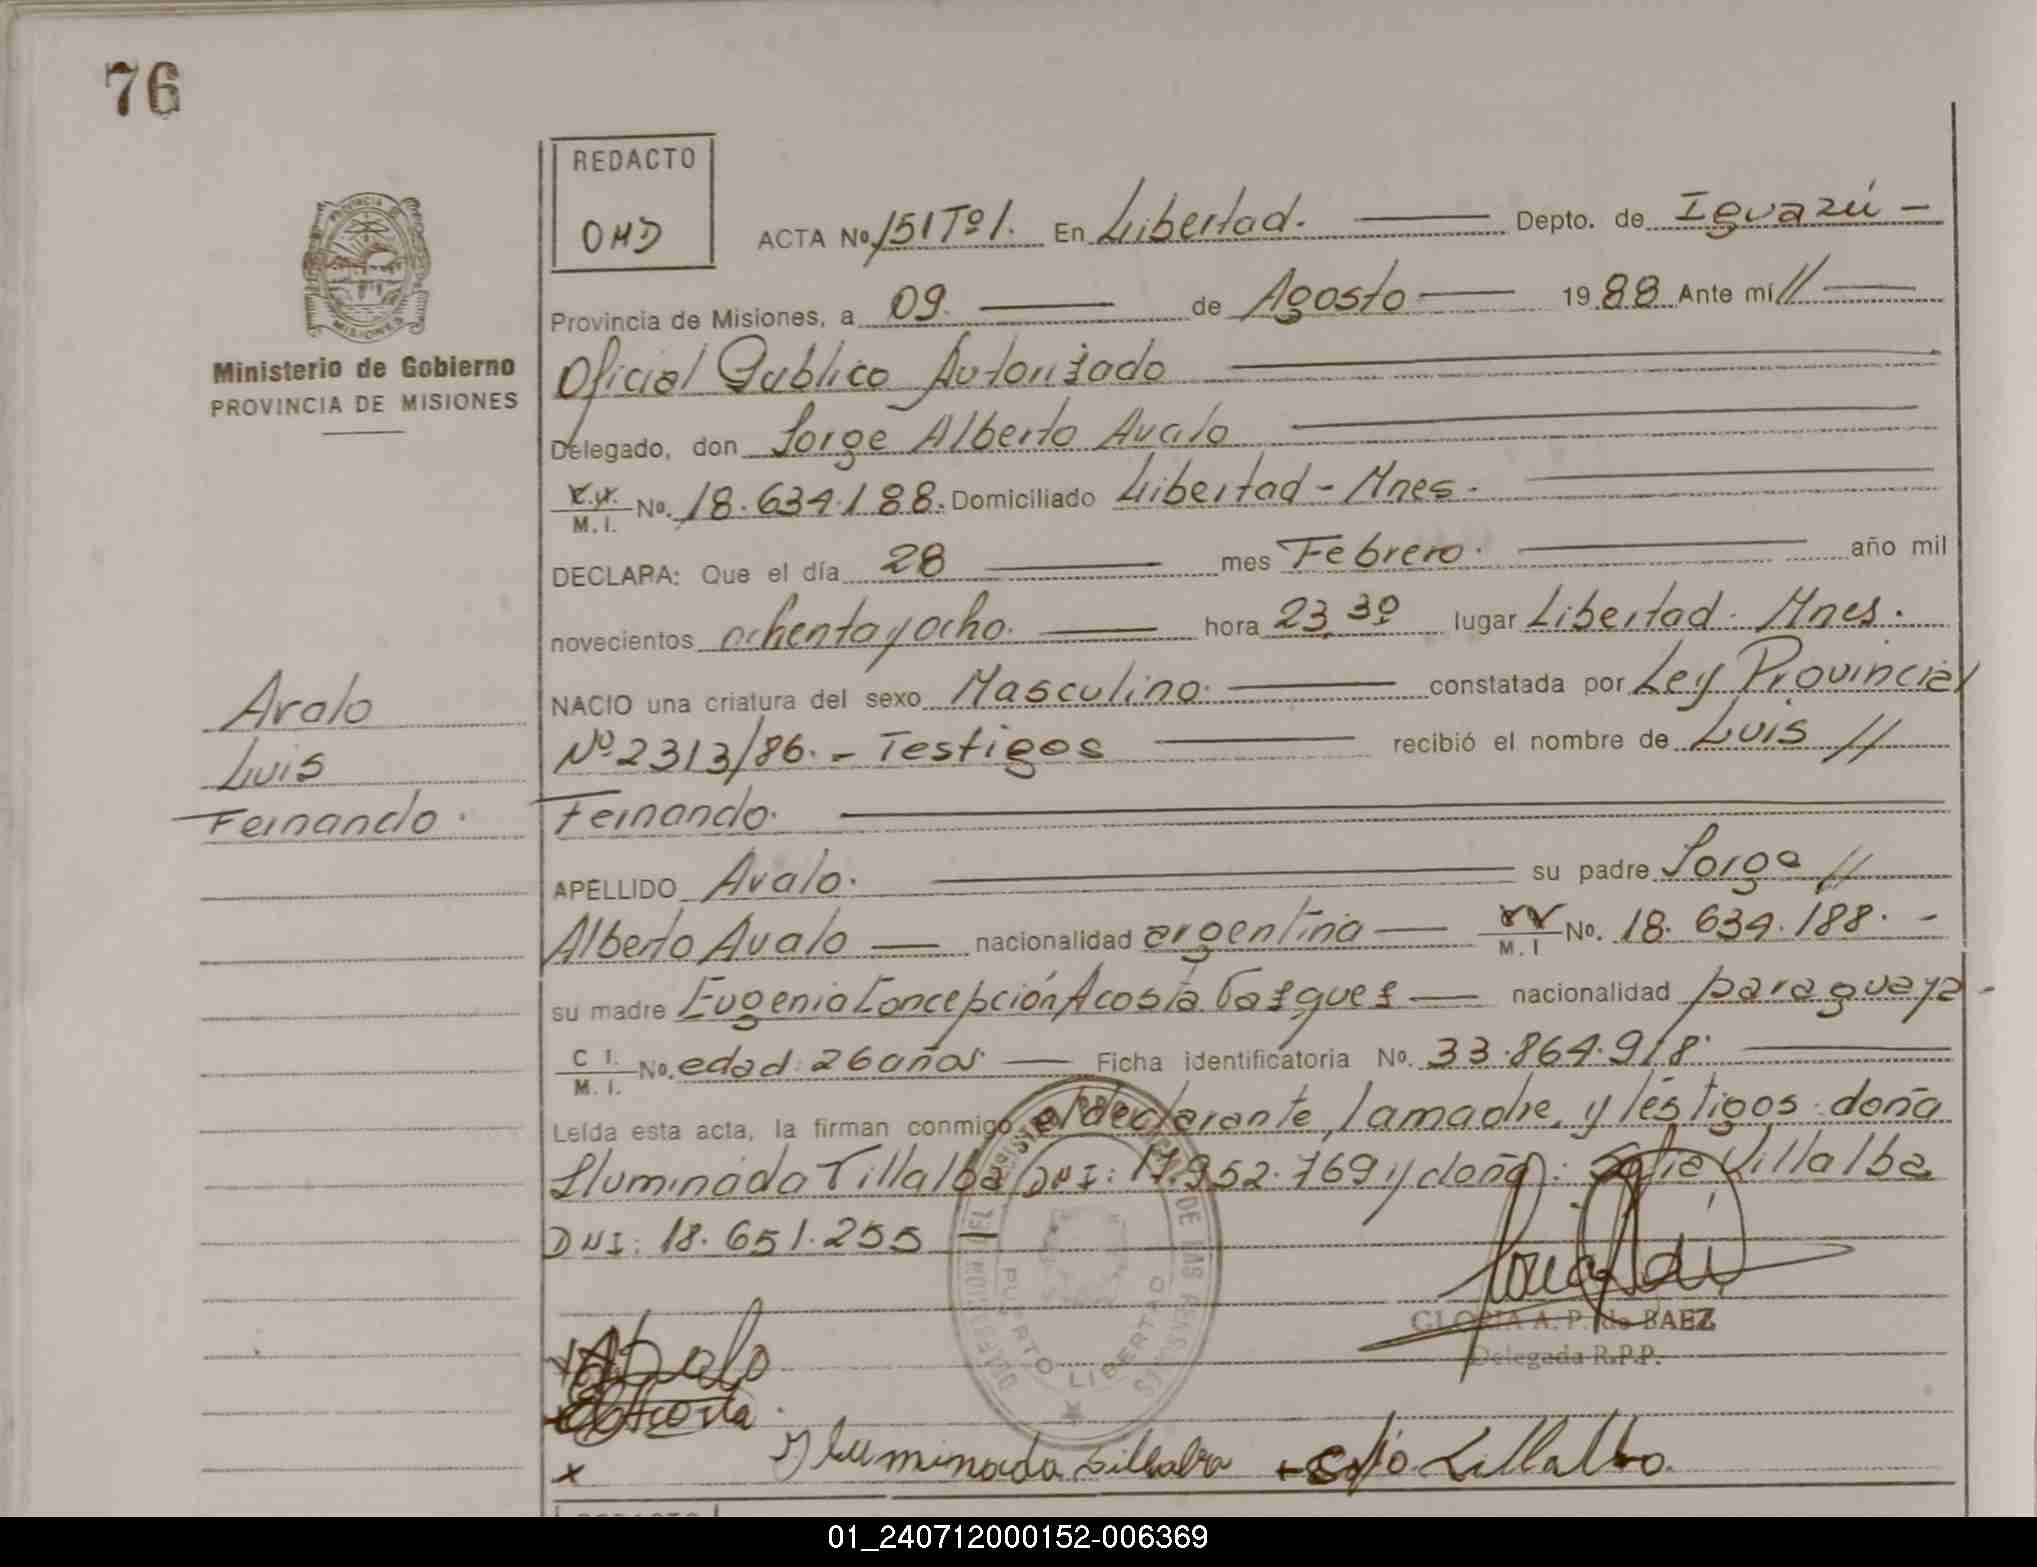 76
REDACTO
OHD
ACTA Nº 151 Tº 1. En Libertad. Depto. de Iguazú -
Provincia de Misiones, a 09. de Agosto 1988 Ante mí //
Ministerio de Gobierno
PROVINCIA DE MISIONES
Oficial Publico Autorizado
Delegado, don Jorge Alberto Avalo
M. I. No. 18.634.188. Domiciliado Libertad - Mnes.
DECLARA: Que el día 28 mes Febrero. año mil
novecientos ochenta y ocho. hora 23,30 lugar Libertad - Mnes.
Avalo
Luis
Fernando.
NACIO una criatura del sexo Masculino. constatada por Ley Provincial
Nº 2313/86. - Testigos recibió el nombre de Luis //
Fernando.
APELLIDO Avalo. su padre Jorge //
Alberto Avalo nacionalidad argentina M. I No. 18.634.188. -
su madre Eugenia Concepción Acosta Vazquez nacionalidad paraguaya -
C I.
M. I. No. edad: 26 años. Ficha identificatoria No. 33.864.918.
Leída esta acta, la firman conmigo el declarante, la madre, y testigos: doña
Iluminada Villalba DNI: 17.952.769 y doña: Villalba
DNI: 18.651.255
GLORIA A. P. de BAEZ
Delegada R.P.P.
PUERTO LIBERTAD
DE LAS PERSONAS
Avalo
Acosta
x Iluminada Villalba
01_240712000152-006369